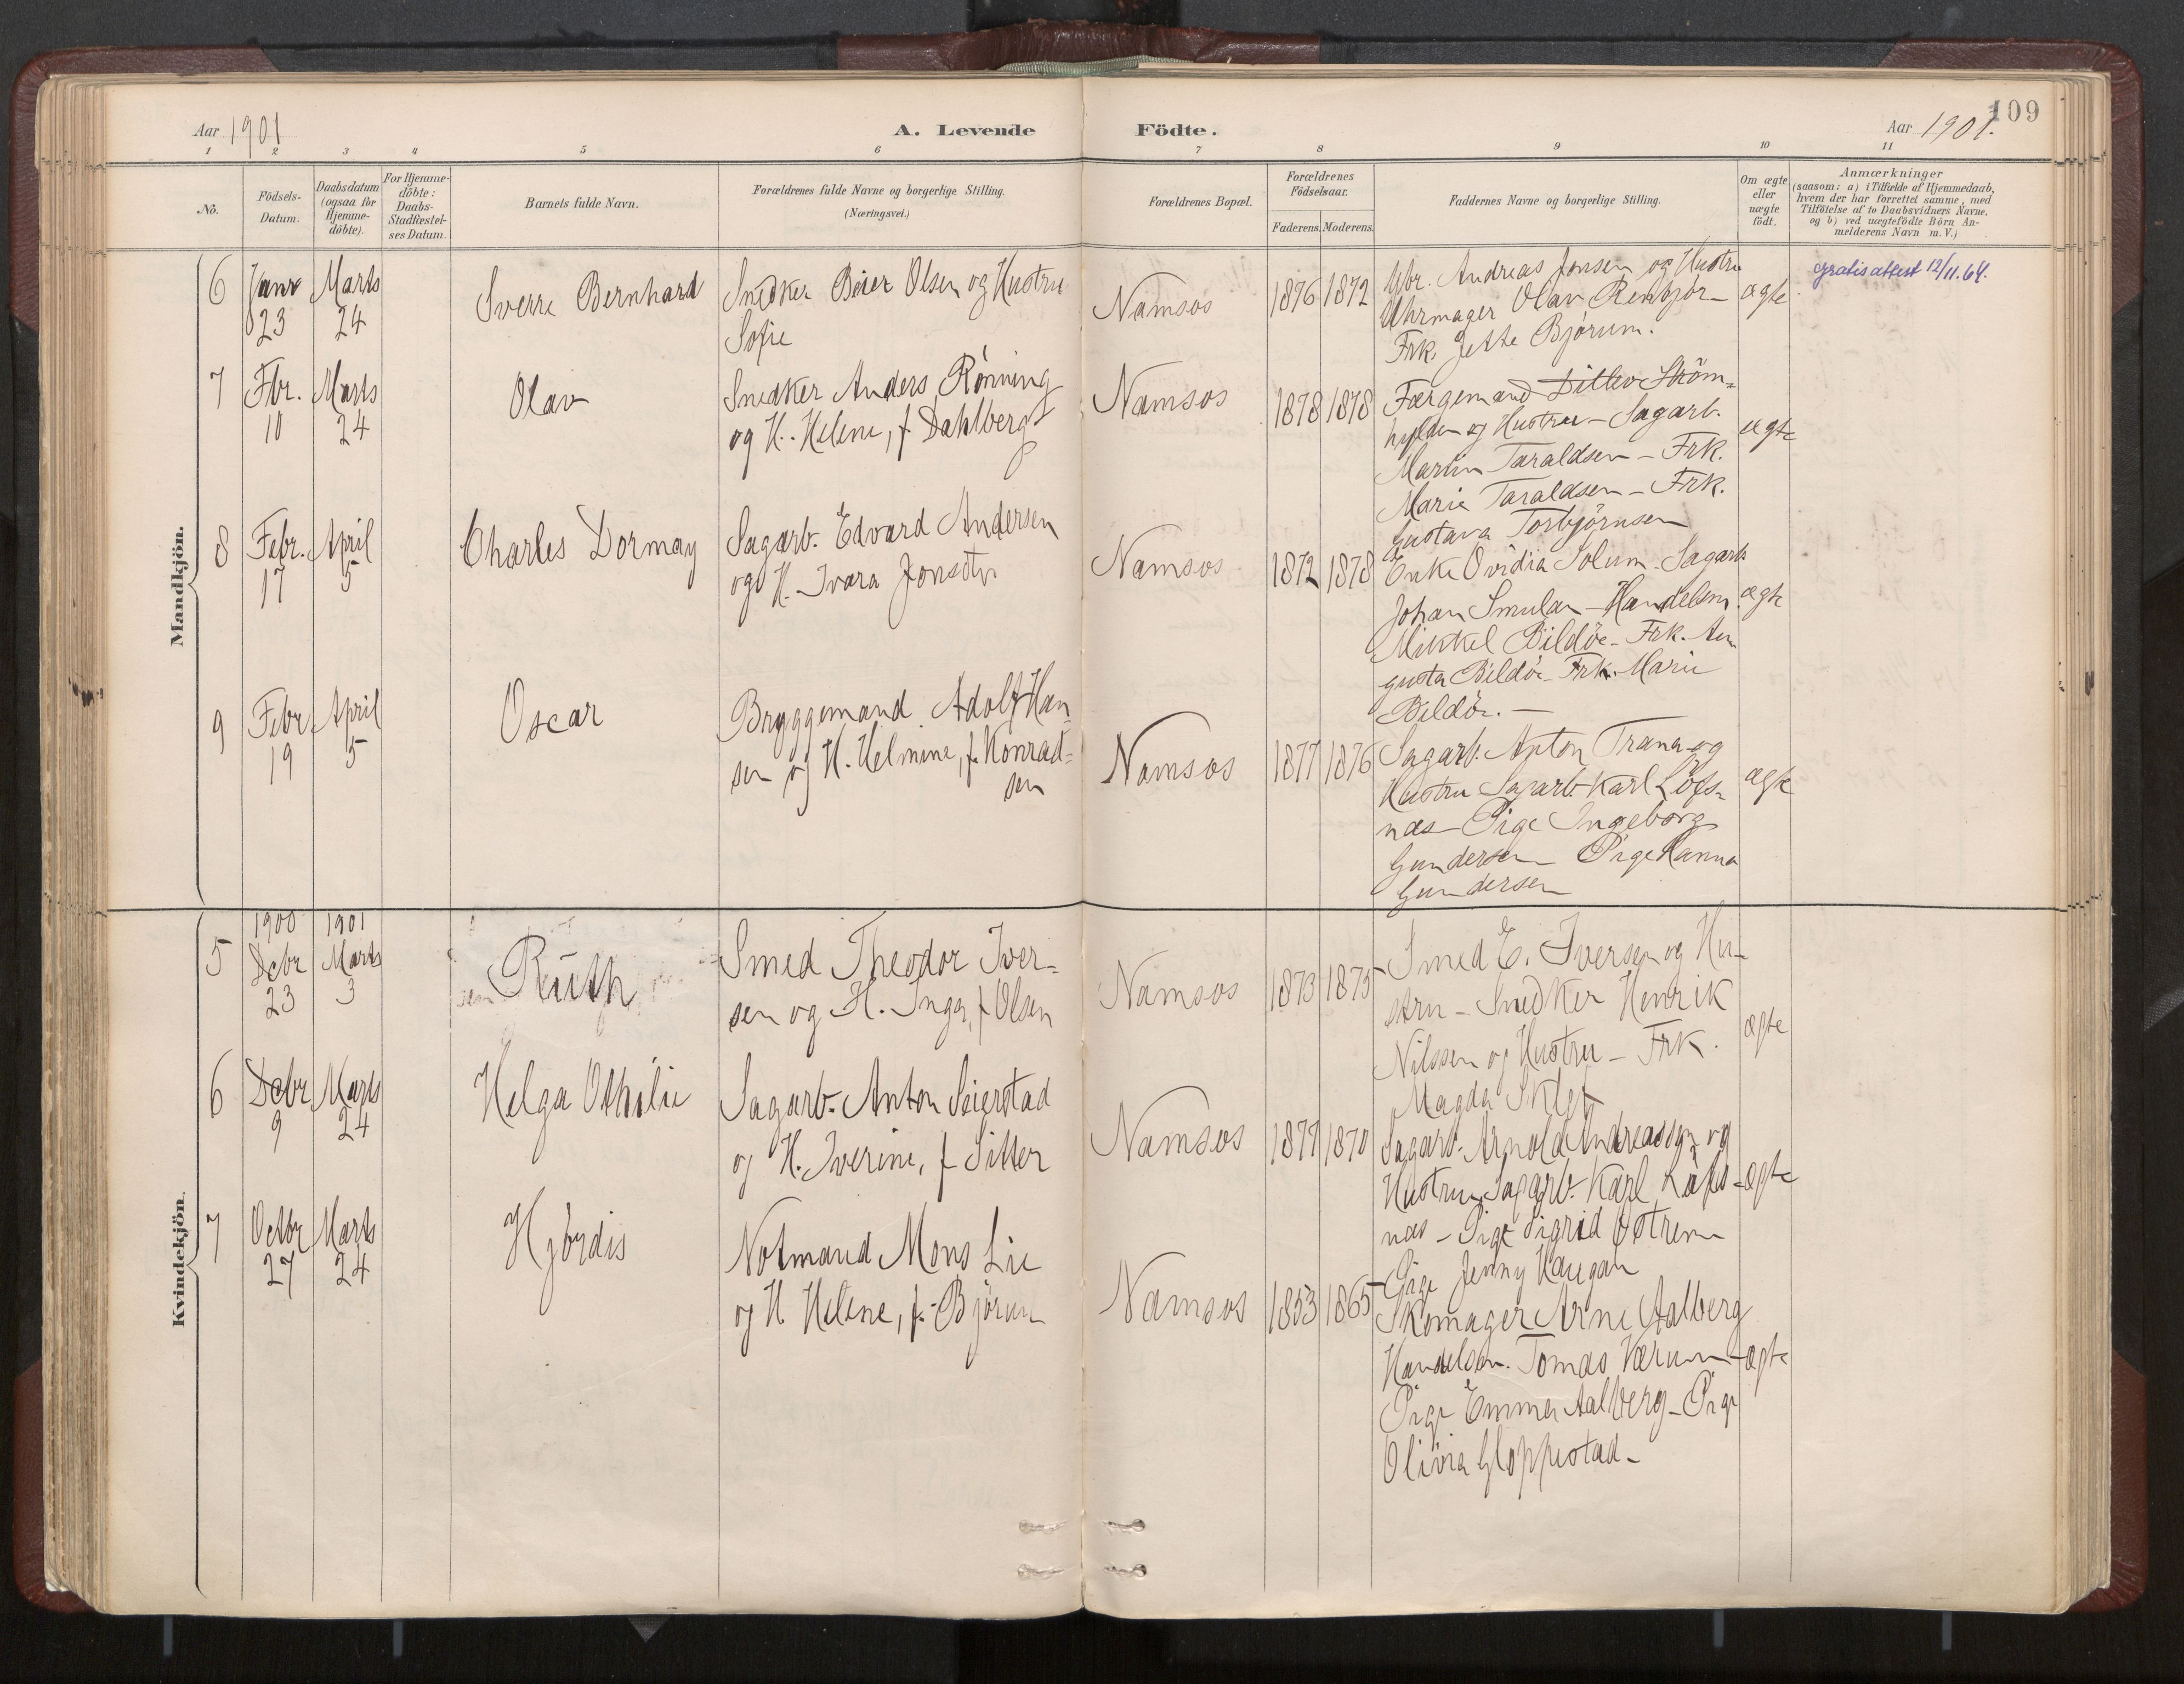 109
Aar 1901
A. Levende Födte.
Aar 1901.
1 2 3 4 5 6 7 8 9 10 11
No.
Födsels-
Datum.
Daabsdatum
(ogsaa for
Hjemme-
döbte).
For Hjemme-
döbte:
Daabs-
Stadfæstel-
ses Datum.
Barnets fulde Navn.
Forældrenes fulde Navne og borgerlige Stilling.
(Næringsvei.)
Forældrenes Bopæl.
Forældrenes
Födselsaar.
Faderens. Moderens.
Faddernes Navne og borgerlige Stilling.
Om ægte
eller
uægte
födt.
Anmærkninger
(saasom: a) i Tilfælde af Hjemmedaab,
hvem der har forrettet samme, med
Tilföielse af to Daabsvidners Navne,
og b) ved uægtefödte Börn An-
melderens Navn m. V.)
Mandkjön.
6
Janr
23
Marts
24
Sverre Bernhard
Snedker Beier Olsen og Hustru
Sofie
Namsos
1876 1872
Andreas Jonsen og Hustru
Uhrmager Olav
Frk. Jette Bjørum.
ægte
gratis attest 12/11.64.
7
Fbr.
10
Marts
24
Olav
Snedker Anders Rönning
og H. Helene, f. Dahlberg
Namsos
1878 1878
Færgemand Ditlev Ström-
hylden og Hustru - Sagarb.
Martin Taraldsen - Frk.
Marie Taraldsen - Frk.
Gustava Torbjörnsen
ægte
8
Febr.
17
April
5
Charles Dormay
Sagarb. Edvard Andersen
og H. Ivara Jonsdtr
Namsos
1872 1878
Enke Ovidia Solum - Sagarb
Johan Smulan - Handelsm.
Mikkel Bildöe - Frk. Au
gusta Bildöe - Frk. Marie
Bildöe. -
ægte
9
Febr
19
April
5
Oscar
Bryggemand Adolf Han
sen og H. Helmine, f. Konrad-
sen
Namsos
1877 1876
Sagarb. Anton Trana og
Hustru Sagarb. Karl Löfs-
næs - Pige Ingeborg
Gundersen Pige Hanna
Gundersen
ægte
Kvindekjön.
5
1900
Debr
23
1901
Marts
3
Ruth
Smed Theodor Iver-
sen og H. Inga, f Olsen
Namsos
1873 1875
Smed E. Iversen og Hu-
stru - Snedker Henrik
Nilssen og Hustru - Frk.
Magda
ægte
6
Debr
9
Marts
24
Helga Othilie
Sagarb. Anton Seierstad
og H. Iverine, f Sitter
Namsos
1877 1870
Sagarb. Arnold Andreassen og
Hustru Sagarb. Karl Löfs-
næs - Pige Sigrid Östrem
Pige Jenny Haugan
ægte
7
Octbr
27
Marts
24
Hjördis
Notmand Mons Lie
og H. Helene, f. Björum
Namsos
1853 1865
Skomager Arne Aalberg
Handelsm. Tomas Værum
Pige Emma Aalberg - Pige
Olivia Gloppestad -
ægte